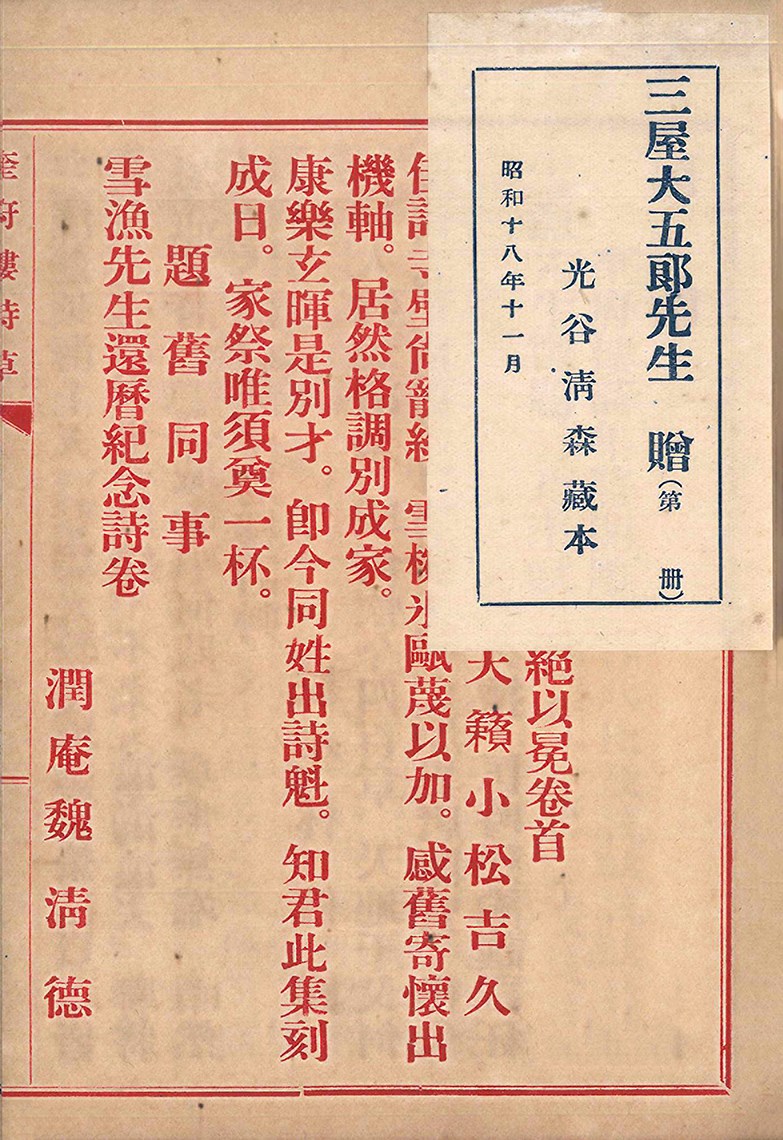 三屋大五郎先生 贈(第 冊)
光谷淸森藏本
昭和十八年十一月
絕以冕卷首
大籟小松吉久
雪椒氷甌蔑以加。感舊寄懷出
機軸。居然格調別成家。
康樂玄暉是別才。卽今同姓出詩魁。知君此集刻
成日。家祭唯須奠一杯。
題舊同事
雪漁先生還曆紀念詩卷
潤庵魏淸德